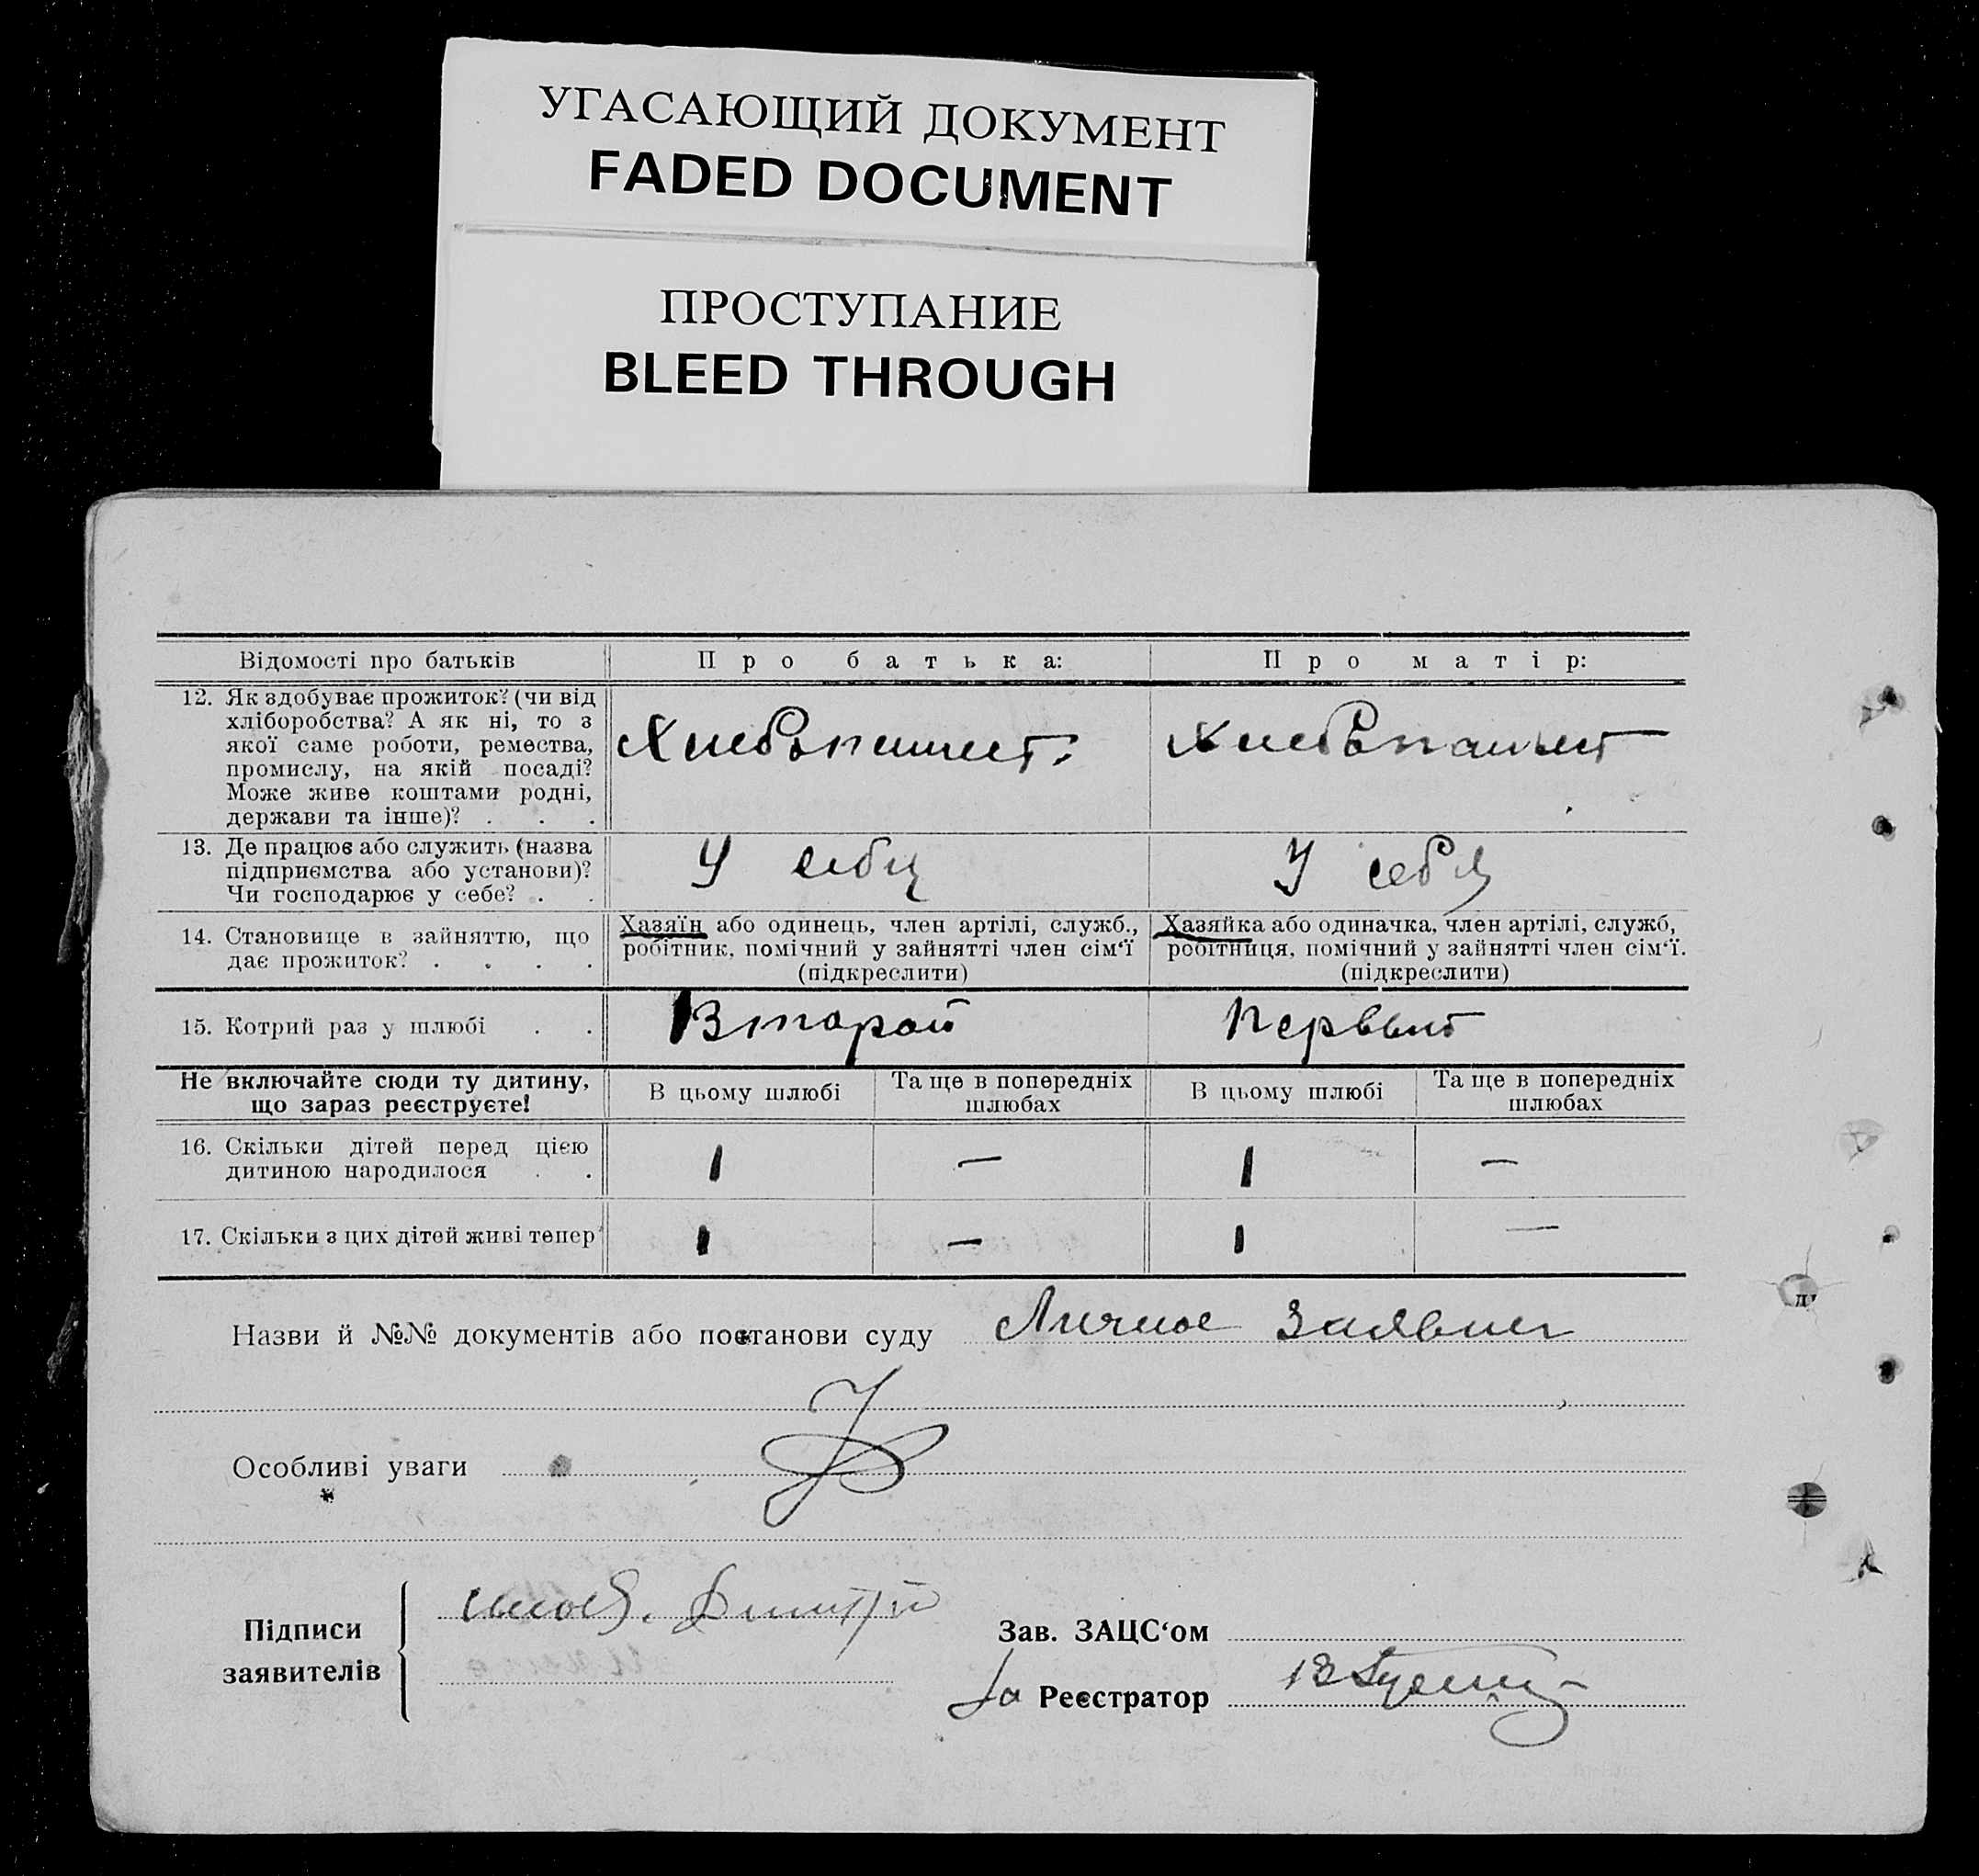 УГАСАЮЩИЙ ДОКУМЕНТ
FADED DOCUMENT
ПРОСТУПАНИЕ
BLEED THROUGH
Відомості про батьків
Про батька:
Про матір:
12. Як здобуває прожиток? (чи від
хліборобства? А як ні, то з
якої саме роботи, ремества,
промислу, на якій посаді?
Може живе коштами родні,
держави та інше)? . . .
Хлебопашест.
Хлебопашест
13. Де працює або служить (назва
підприємства або установи)?
Чи господарює у себе? . .
У себя
У себя
14. Становище в зайняттю, що
дає прожиток? . . . .
Хазяїн або одинець, член артілі, служб.,
робітник, помічний у зайнятті член сім‘ї
(підкреслити)
Хазяйка або одиначка, член артілі, служб,
робітниця, помічний у зайнятті член сім‘ї.
(підкреслити)
15. Котрий раз у шлюбі . .
Второй
Первый
Не включайте сюди ту дитину,
що зараз реєструєте!
В цьому шлюбі
Та ще в попередніх
шлюбах
В цьому шлюбі
Та ще в попередніх
шлюбах
16. Скільки дітей перед цією
дитиною народилося . .
1 — 1 —
17. Скільки з цих дітей живі тепер
1 — 1 —
Назви й №№ документів або постанови суду Личное
Особливі уваги
Підписи
заявителів
Дмитрий
Зав. ЗАЦС‘ом
За Реєстратор